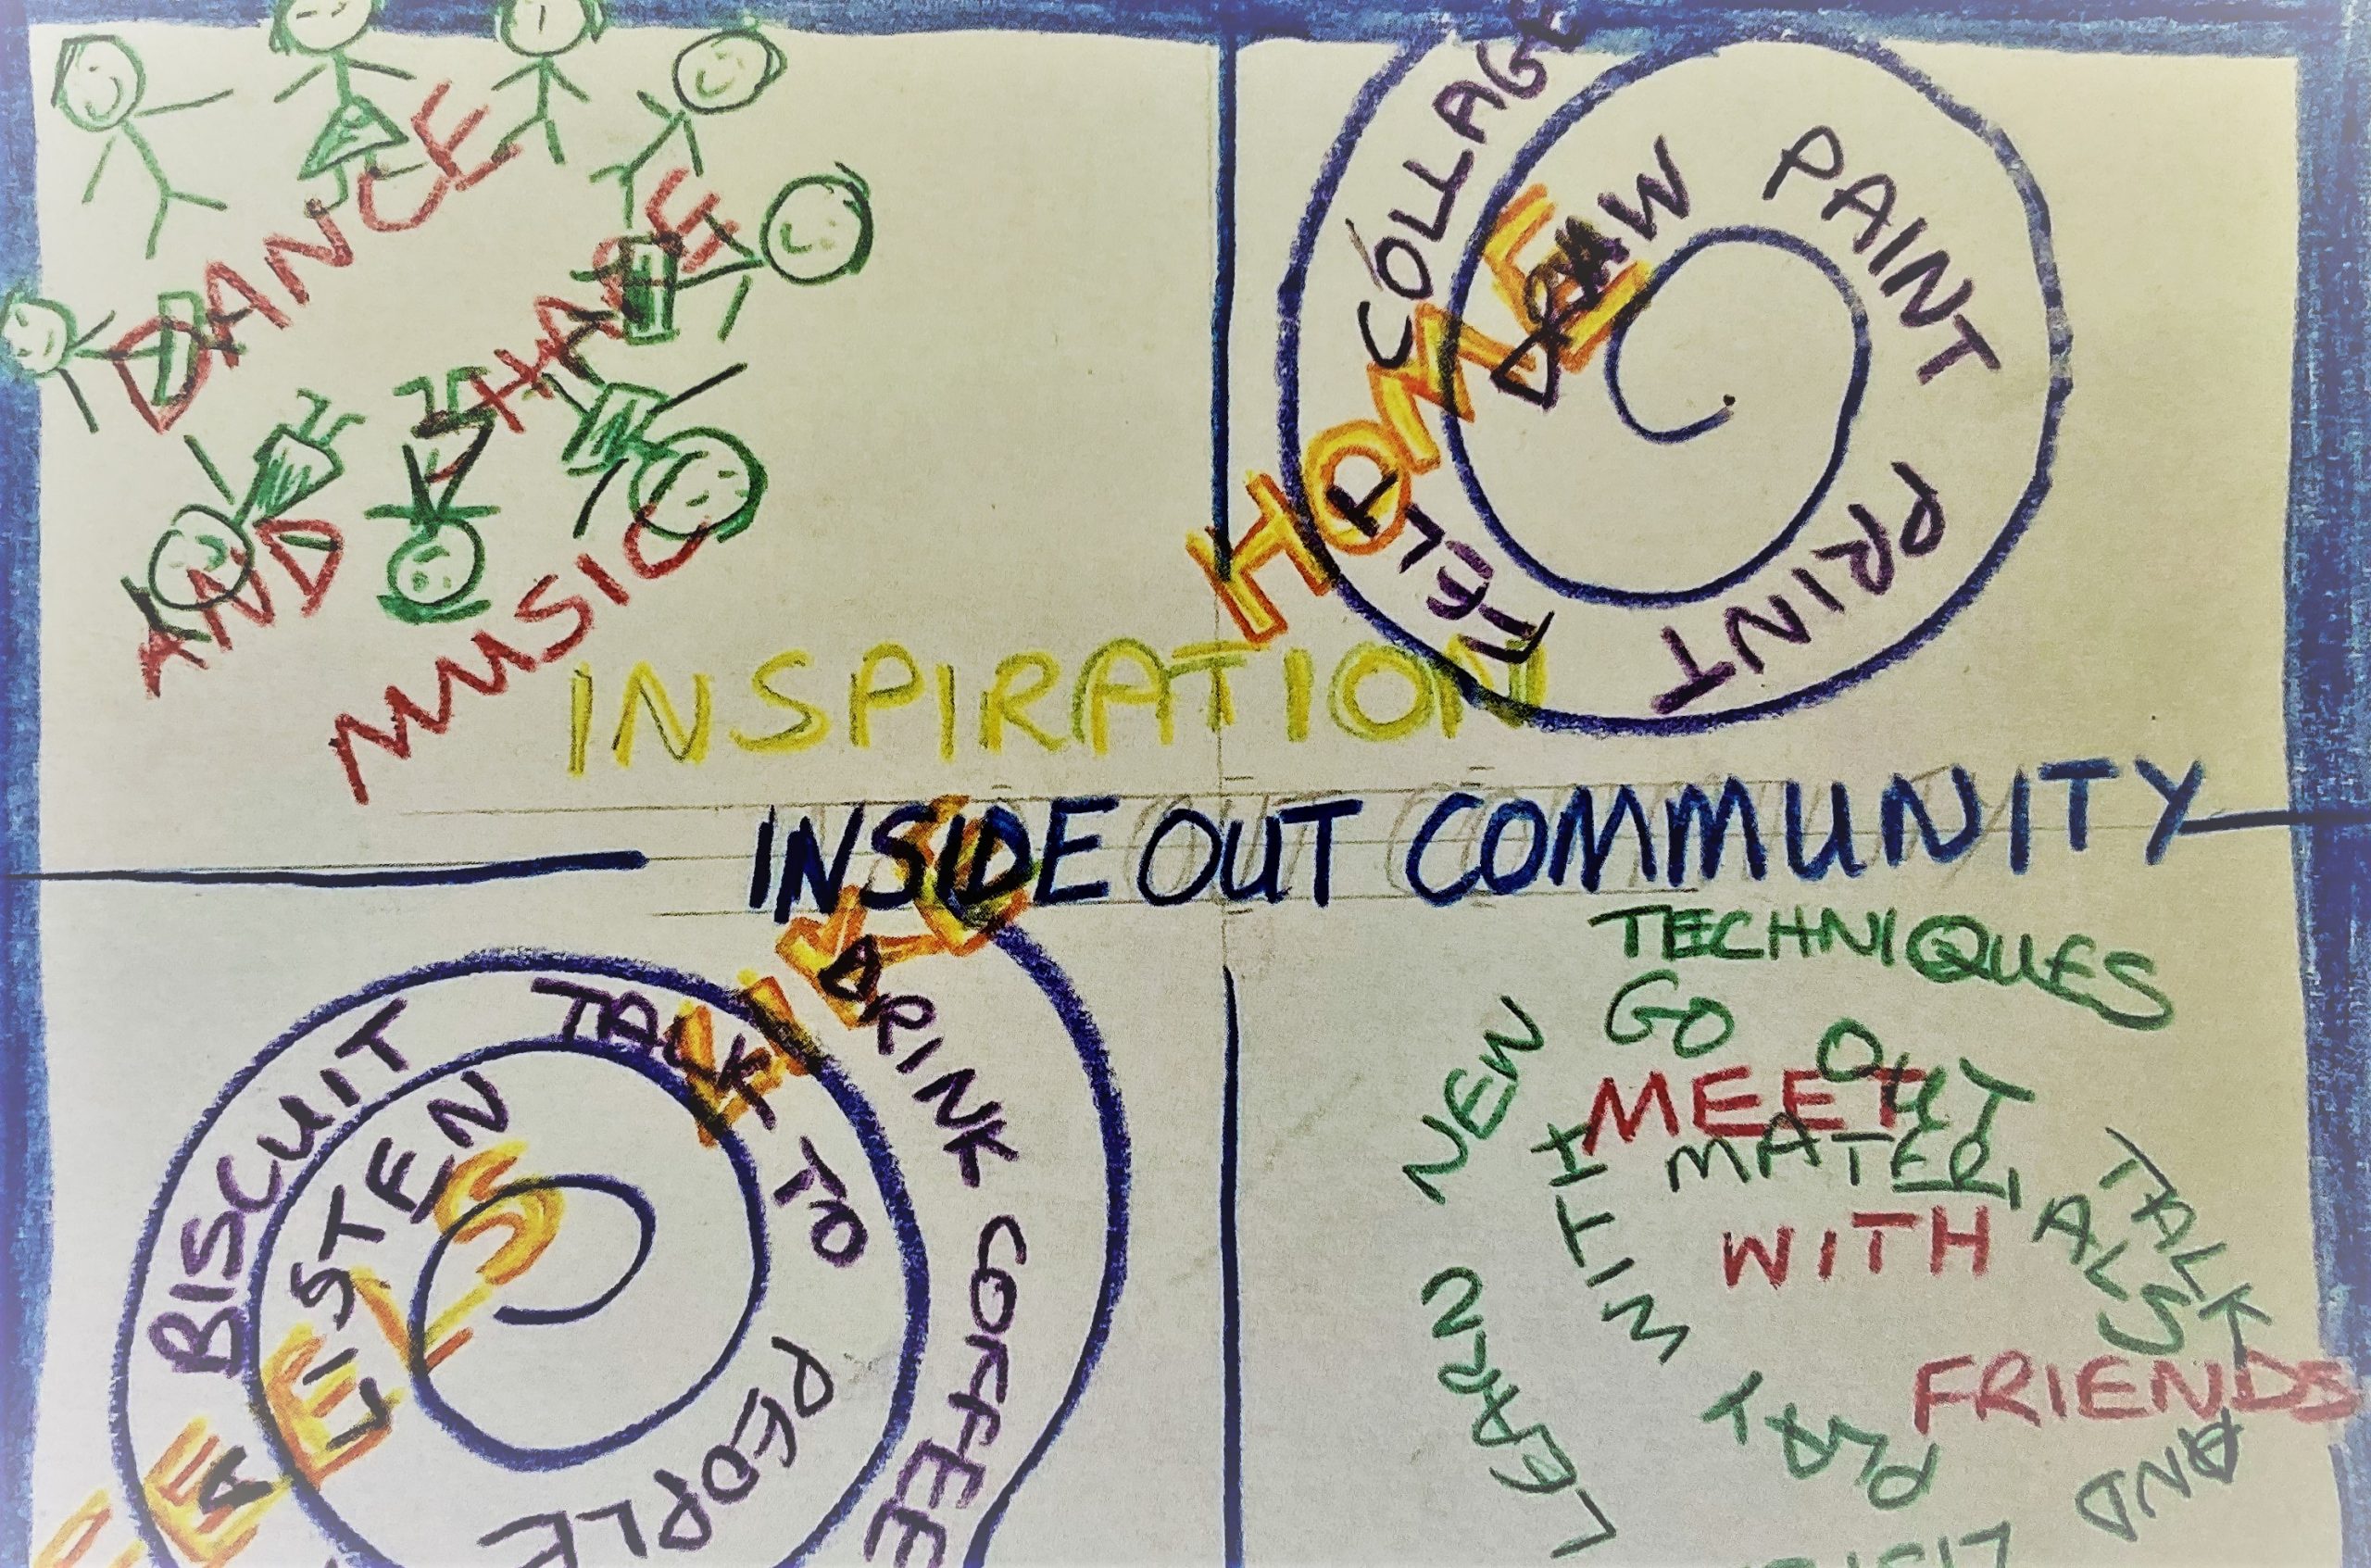 DANCE
SHARE
AND
MUSIC
INSPIRATION
COLLAGE
DRAW PAINT
PRINT
FELT
HOME
INSIDE OUT COMMUNITY
FEELS LIKE
DRINK COFFEE
A BISCUIT
TALK TO
PEOPLE
LISTEN
TECHNIQUES
GO OUT
NEW
LEARN
MEET
WITH
FRIENDS
PLAY
WITH
MATERIALS
TALK
AND